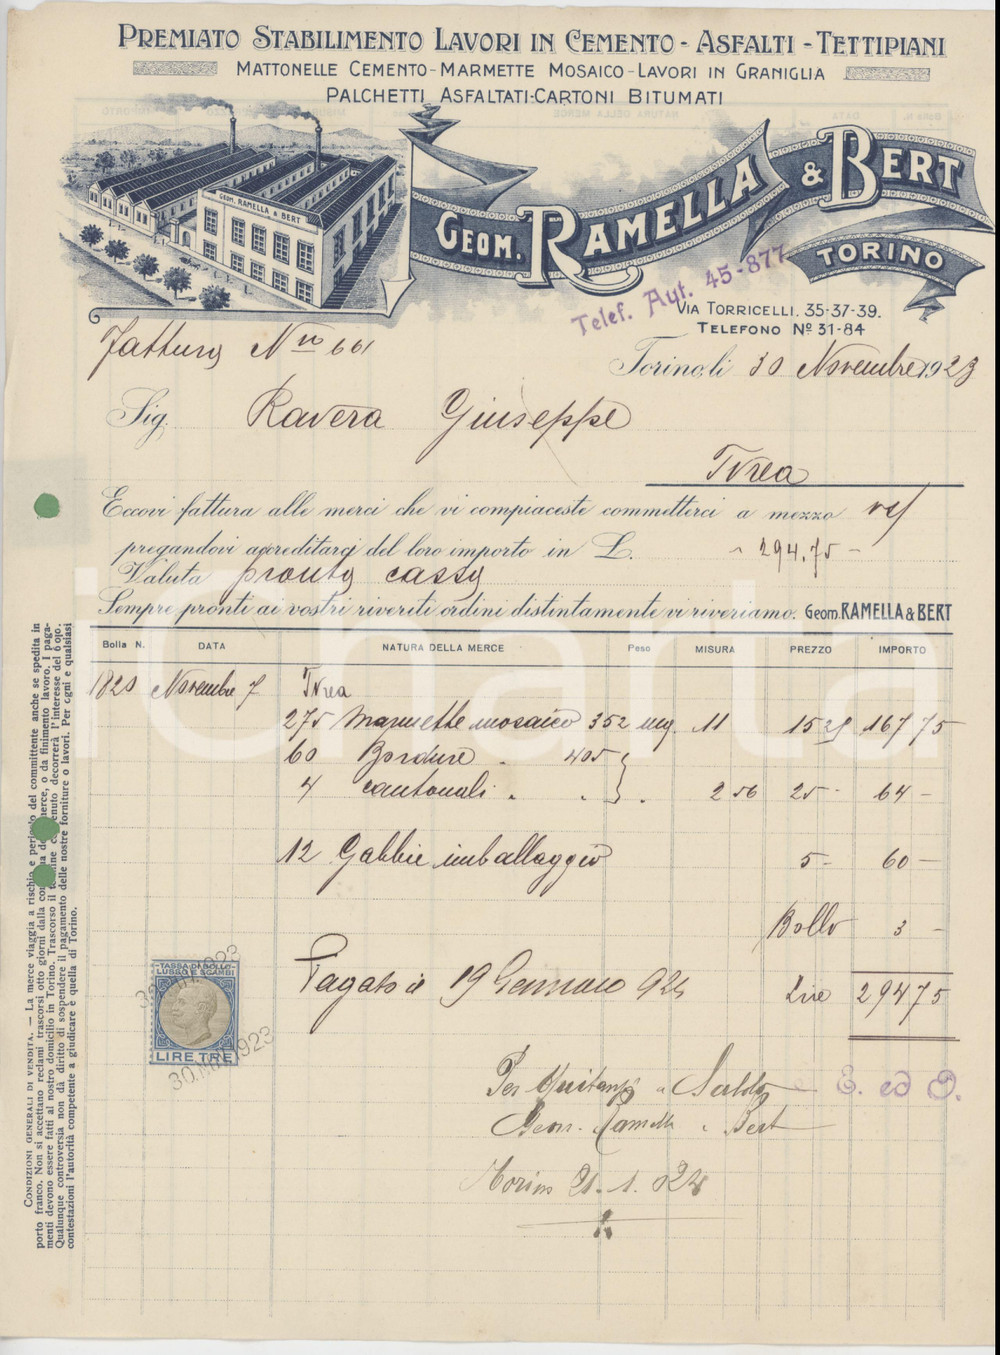 PREMIATO STABILIMENTO LAVORI IN CEMENTO - ASFALTI - TETTIPIANI
MATTONELLE CEMENTO - MARMETTE MOSAICO - LAVORI IN GRANIGLIA
PALCHETTI ASFALTATI - CARTONI BITUMATI
GEOM. RAMELLA & BERT
GEOM. RAMELLA & BERT
TORINO
Telef. Aut. 45-877
VIA TORRICELLI. 35-37-39.
TELEFONO Nº 31-84
Fattura Nro 661
Torino, li 30 Novembre 1923
Sig. Ravera Giuseppe
Ivrea
Eccovi fattura alle merci che vi compiaceste commetterci a mezzo
pregandovi accreditarci del loro importo in L. 294.75
Valuta pronta cassa
Sempre pronti ai vostri riveriti ordini distintamente vi riveriamo. Geom. RAMELLA & BERT
Bolla N. DATA NATURA DELLA MERCE Peso MISURA PREZZO IMPORTO
1820 Novembre 7 Ivrea
275 Marmette mosaico 352 mq. 11 15 25 167 75
60 Bordure " 405
4 cantonali " " . 2 56 25 - 64 -
12 Gabbie imballaggio 5 - 60 -
Bollo 3 -
Pagato il 19 Gennaio 924 Lire 294 75
TASSA DI BOLLO
LUSSO E SCAMBI
LIRE TRE
30.NOV.1923
Per Quitanza a Saldo E. ed O.
Geom. Ramella e Bert
Torino 21.1.924
CONDIZIONI GENERALI DI VENDITA. — La merce viaggia a rischio e pericolo del committente anche se spedita in
porto franco. Non si accettano reclami trascorsi otto giorni dalla consegna della merce, o da finimento lavoro. I paga-
menti devono essere fatti al nostro domicilio in Torino. Trascorso il termine convenuto decorrerà l'interesse del 6 o|o.
Qualunque controversia non dà diritto di sospendere il pagamento delle nostre forniture o lavori. Per ogni e qualsiasi
contestazioni l'autorità competente a giudicare è quella di Torino.
iCharta